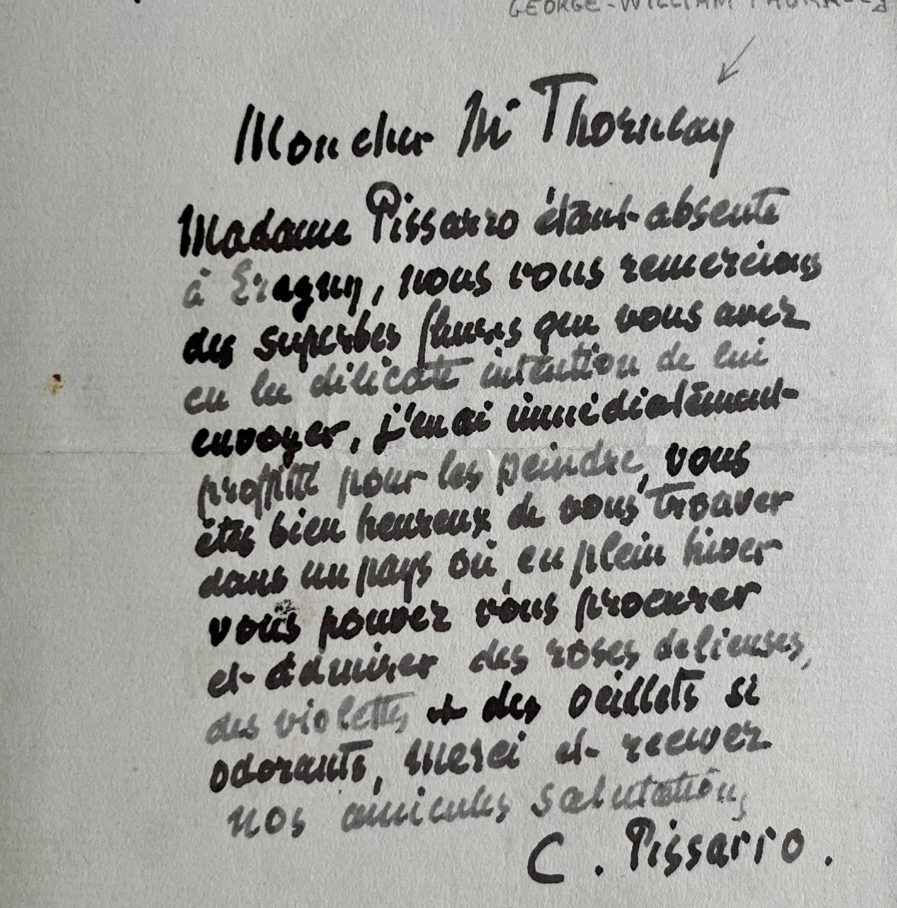 GEORGE-WILLIAM
Mon cher Mr Thornley
Madame Pissarro étant absente
à Eragny, nous vous remercions
des superbes fleurs que vous avez
eu la délicate intention de lui
envoyer, j'en ai immédiatement
proffité pour les peindre, vous
êtes bien heureux de vous trouver
dans un pays où, en plein hiver
vous pouvez vous procurer
et admirer des roses delieuses,
des violettes et des oeillets si
odorants, merci et recevez
nos amicales salutations,
C. Pissarro.